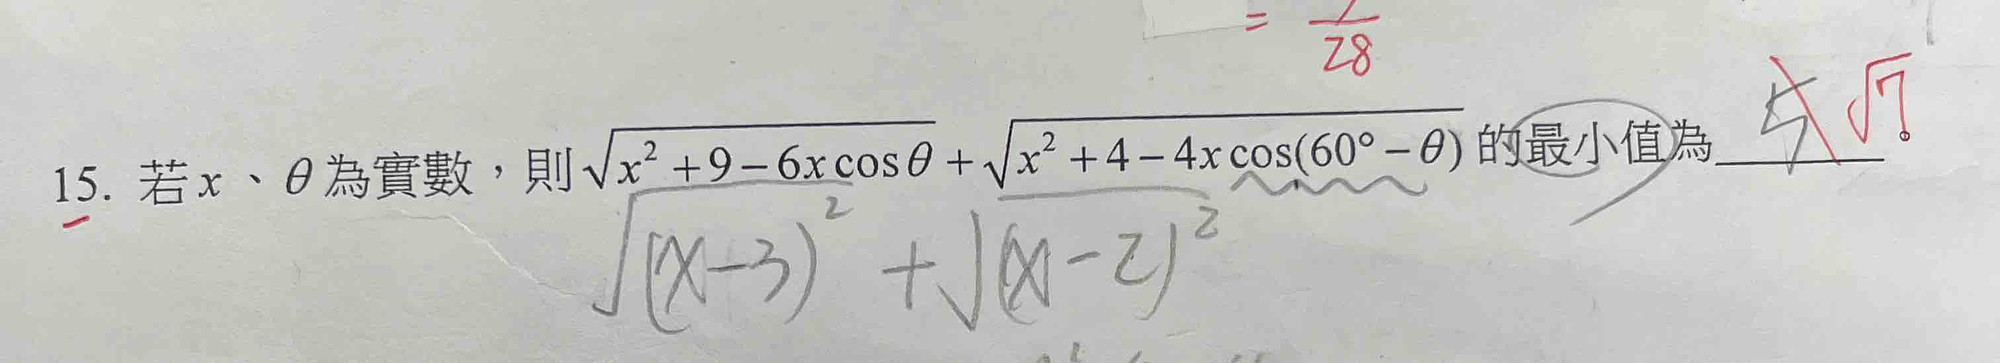 = 28
15. 若 x、θ 為實數，則 √(x² + 9 − 6x cos θ) + √(x² + 4 − 4x cos(60° − θ)) 的最小值為 5 √7
√(x−3)² + √(x−2)²